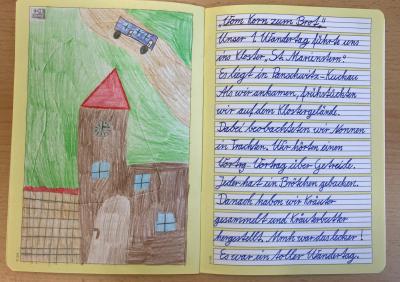 „Vom Korn zum Brot."
Unser 1. Wandertag führte uns
ins Kloster „St. Marienstern".
Es liegt in Panschwitz-Kuckau
Als wir ankamen, frühstückten
wir auf dem Klostergelände.
Dabei beobachteten wir Nonnen
in Trachten. Wir hörten einen
Vortrag über Getreide.
Jeder hat ein Brötchen gebacken.
Danach haben wir Kräuter
gesammelt und Kräuterbutter
hergestellt. Mmh war das lecker!
Es war ein toller Wandertag.